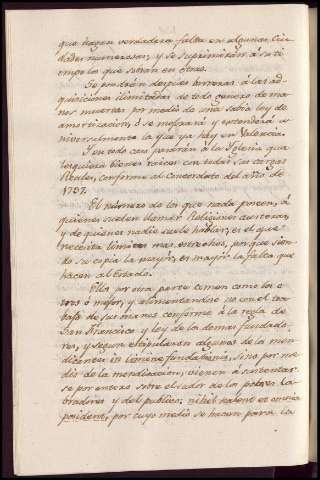 que hagan verdadera falta en algunas Ciu
dades numerosas; y se suprimirán á su ti
empo los que sirvan en otras.
Se pondrán despues barreras á las ad
quisiciones ilimitadas de todo genero de ma
nos muertas por medio de una sabia ley de
amortizacion, ó se mejorará y extenderá u
niversalmente la que ya hay en Valencia.
Y en todo caso pondrán á la Iglesia que
adquiera bienes raices con todas sus cargas
Reales, conforme al Concordato del año de
1737.
El número de los que nada poseen, á
quienes suelen llamar Religiones austeras,
y de quienes nadie suele hablar, es el que
necesita limites mas estrechos, porque sien
do su copia la mayor, es mayor la falta que
hacen al Estado.
Ellos por otra parte comen como los o
tros ó mejor, y alimentandose no con el tra
bajo de sus manos conforme á la regla de
San Francisco y ley de los demas fundado
res, y segun estipularon algunos de los men
dicantes in limine fundationis, sino por me
dio de la mendicacion, vienen á sustentar
se por entero sobre el sudor de los pobres la
bradores y del publico: nihil habent et omnia
possident, por cuyo medio se hacen para la